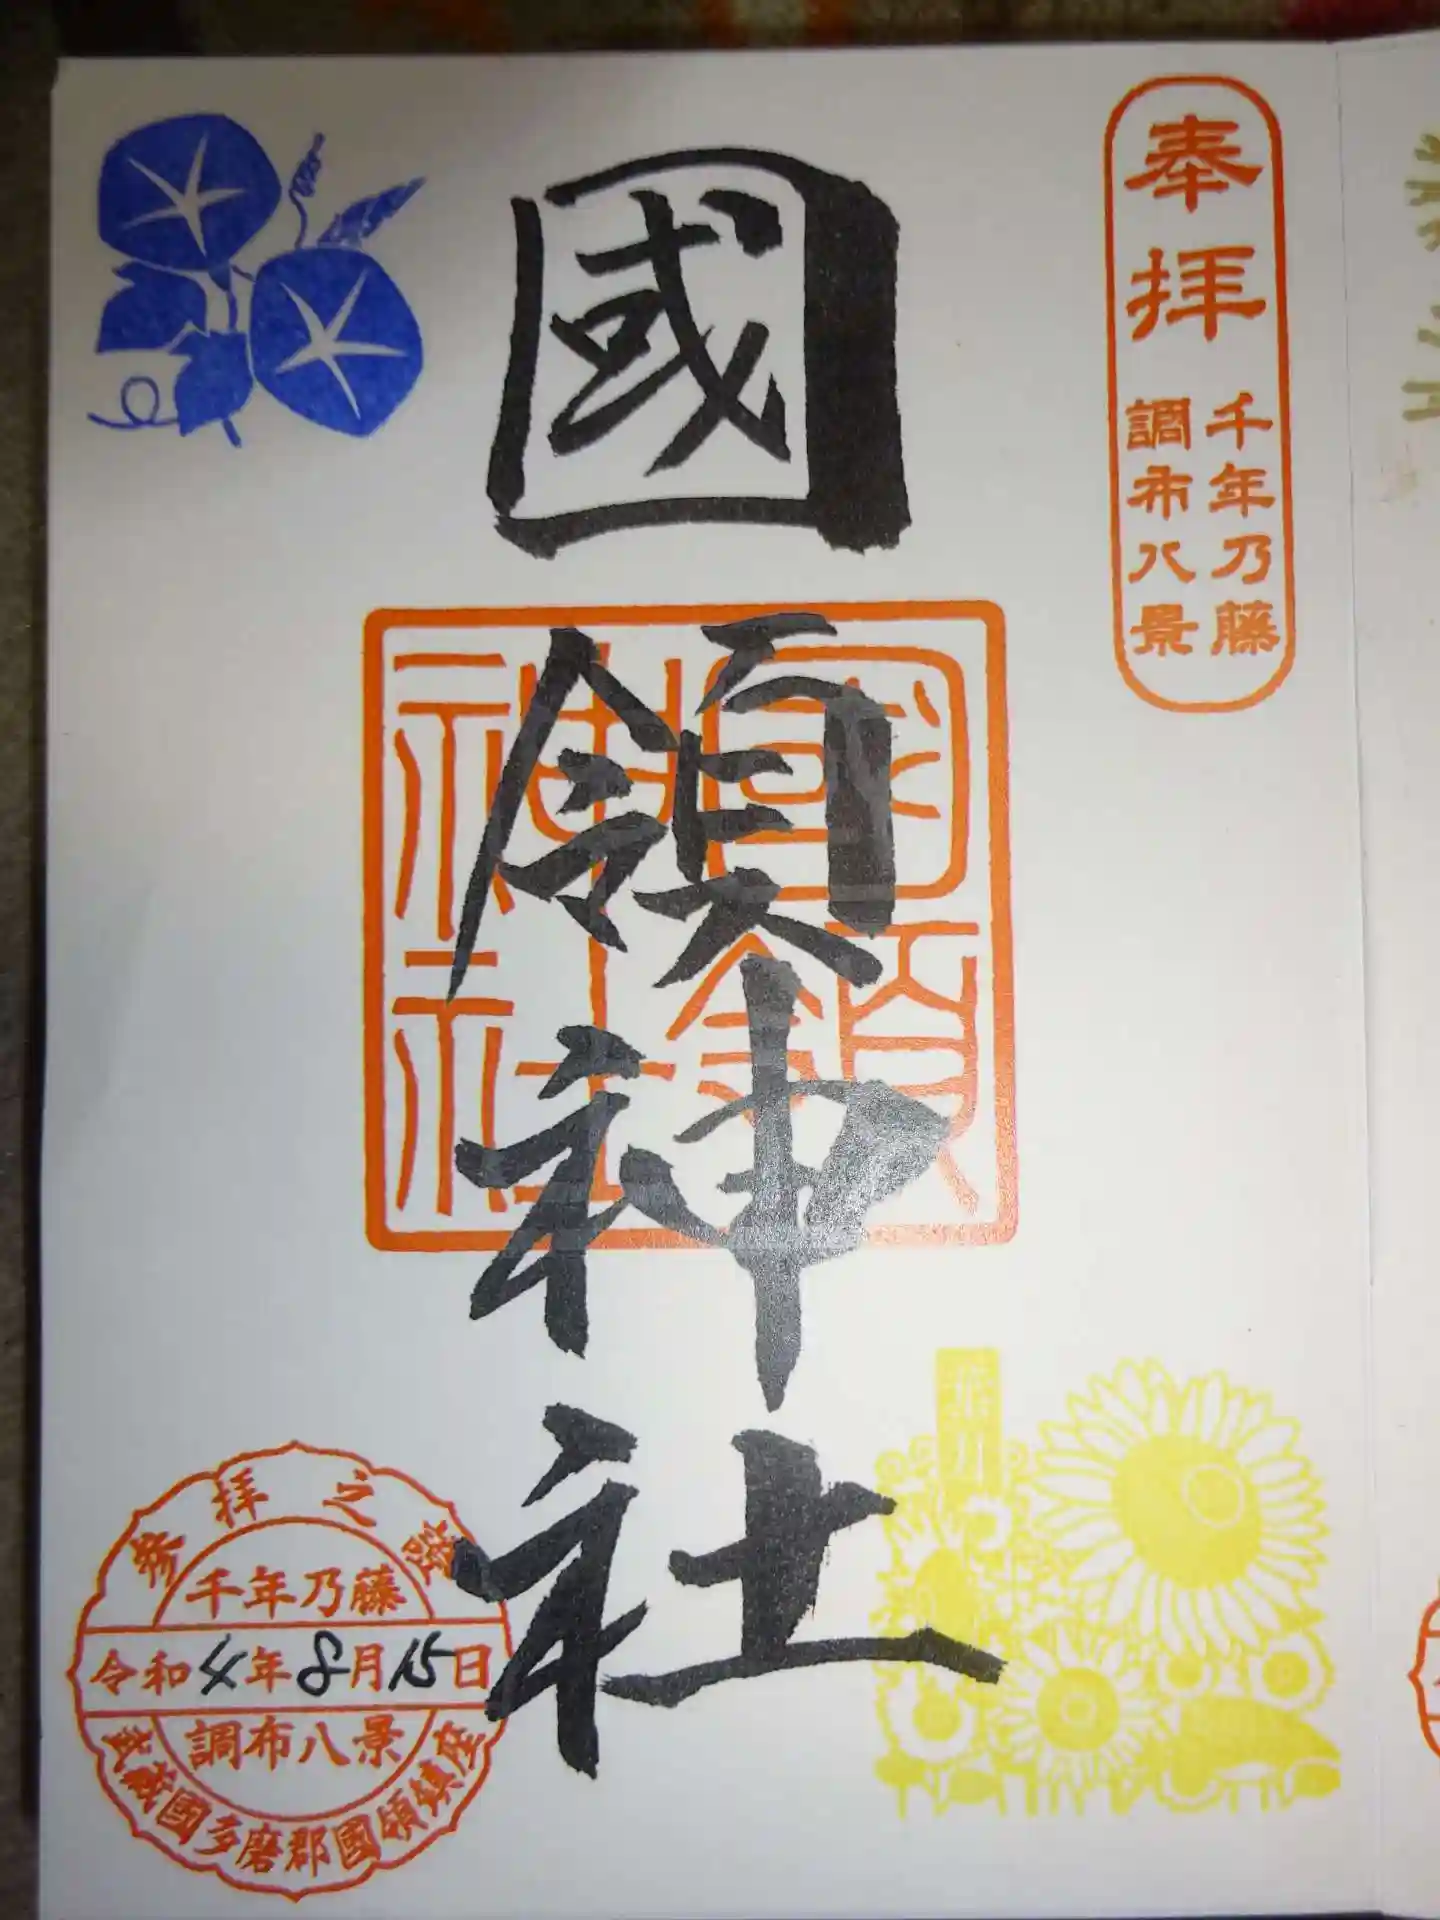 奉拝
千年乃藤
調布八景
國領神社
國領
神社
葉月
参拝之證
千年乃藤
令和4年8月15日
調布八景
武蔵國多磨郡國領鎮座